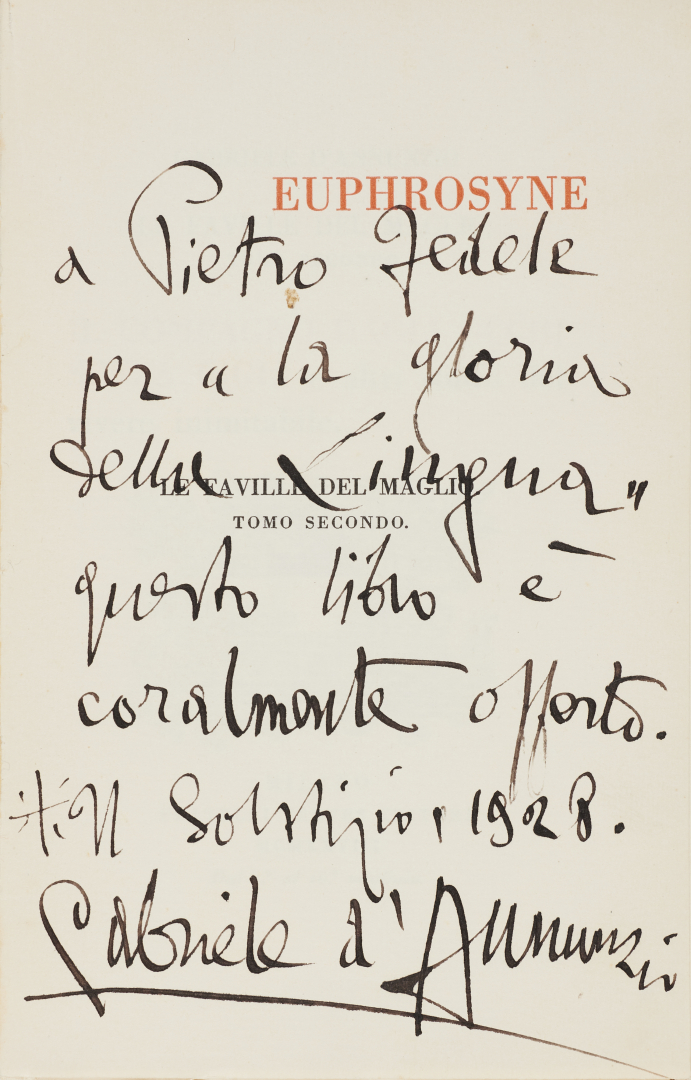 EUPHROSYNE
a Pietro Fedele
per “ la gloria
della Lingua „
LE FAVILLE DEL MAGLIO
TOMO SECONDO.
questo libro è
coralmente offerto.
Il Solstizio, 1928.
Gabriele d'Annunzio